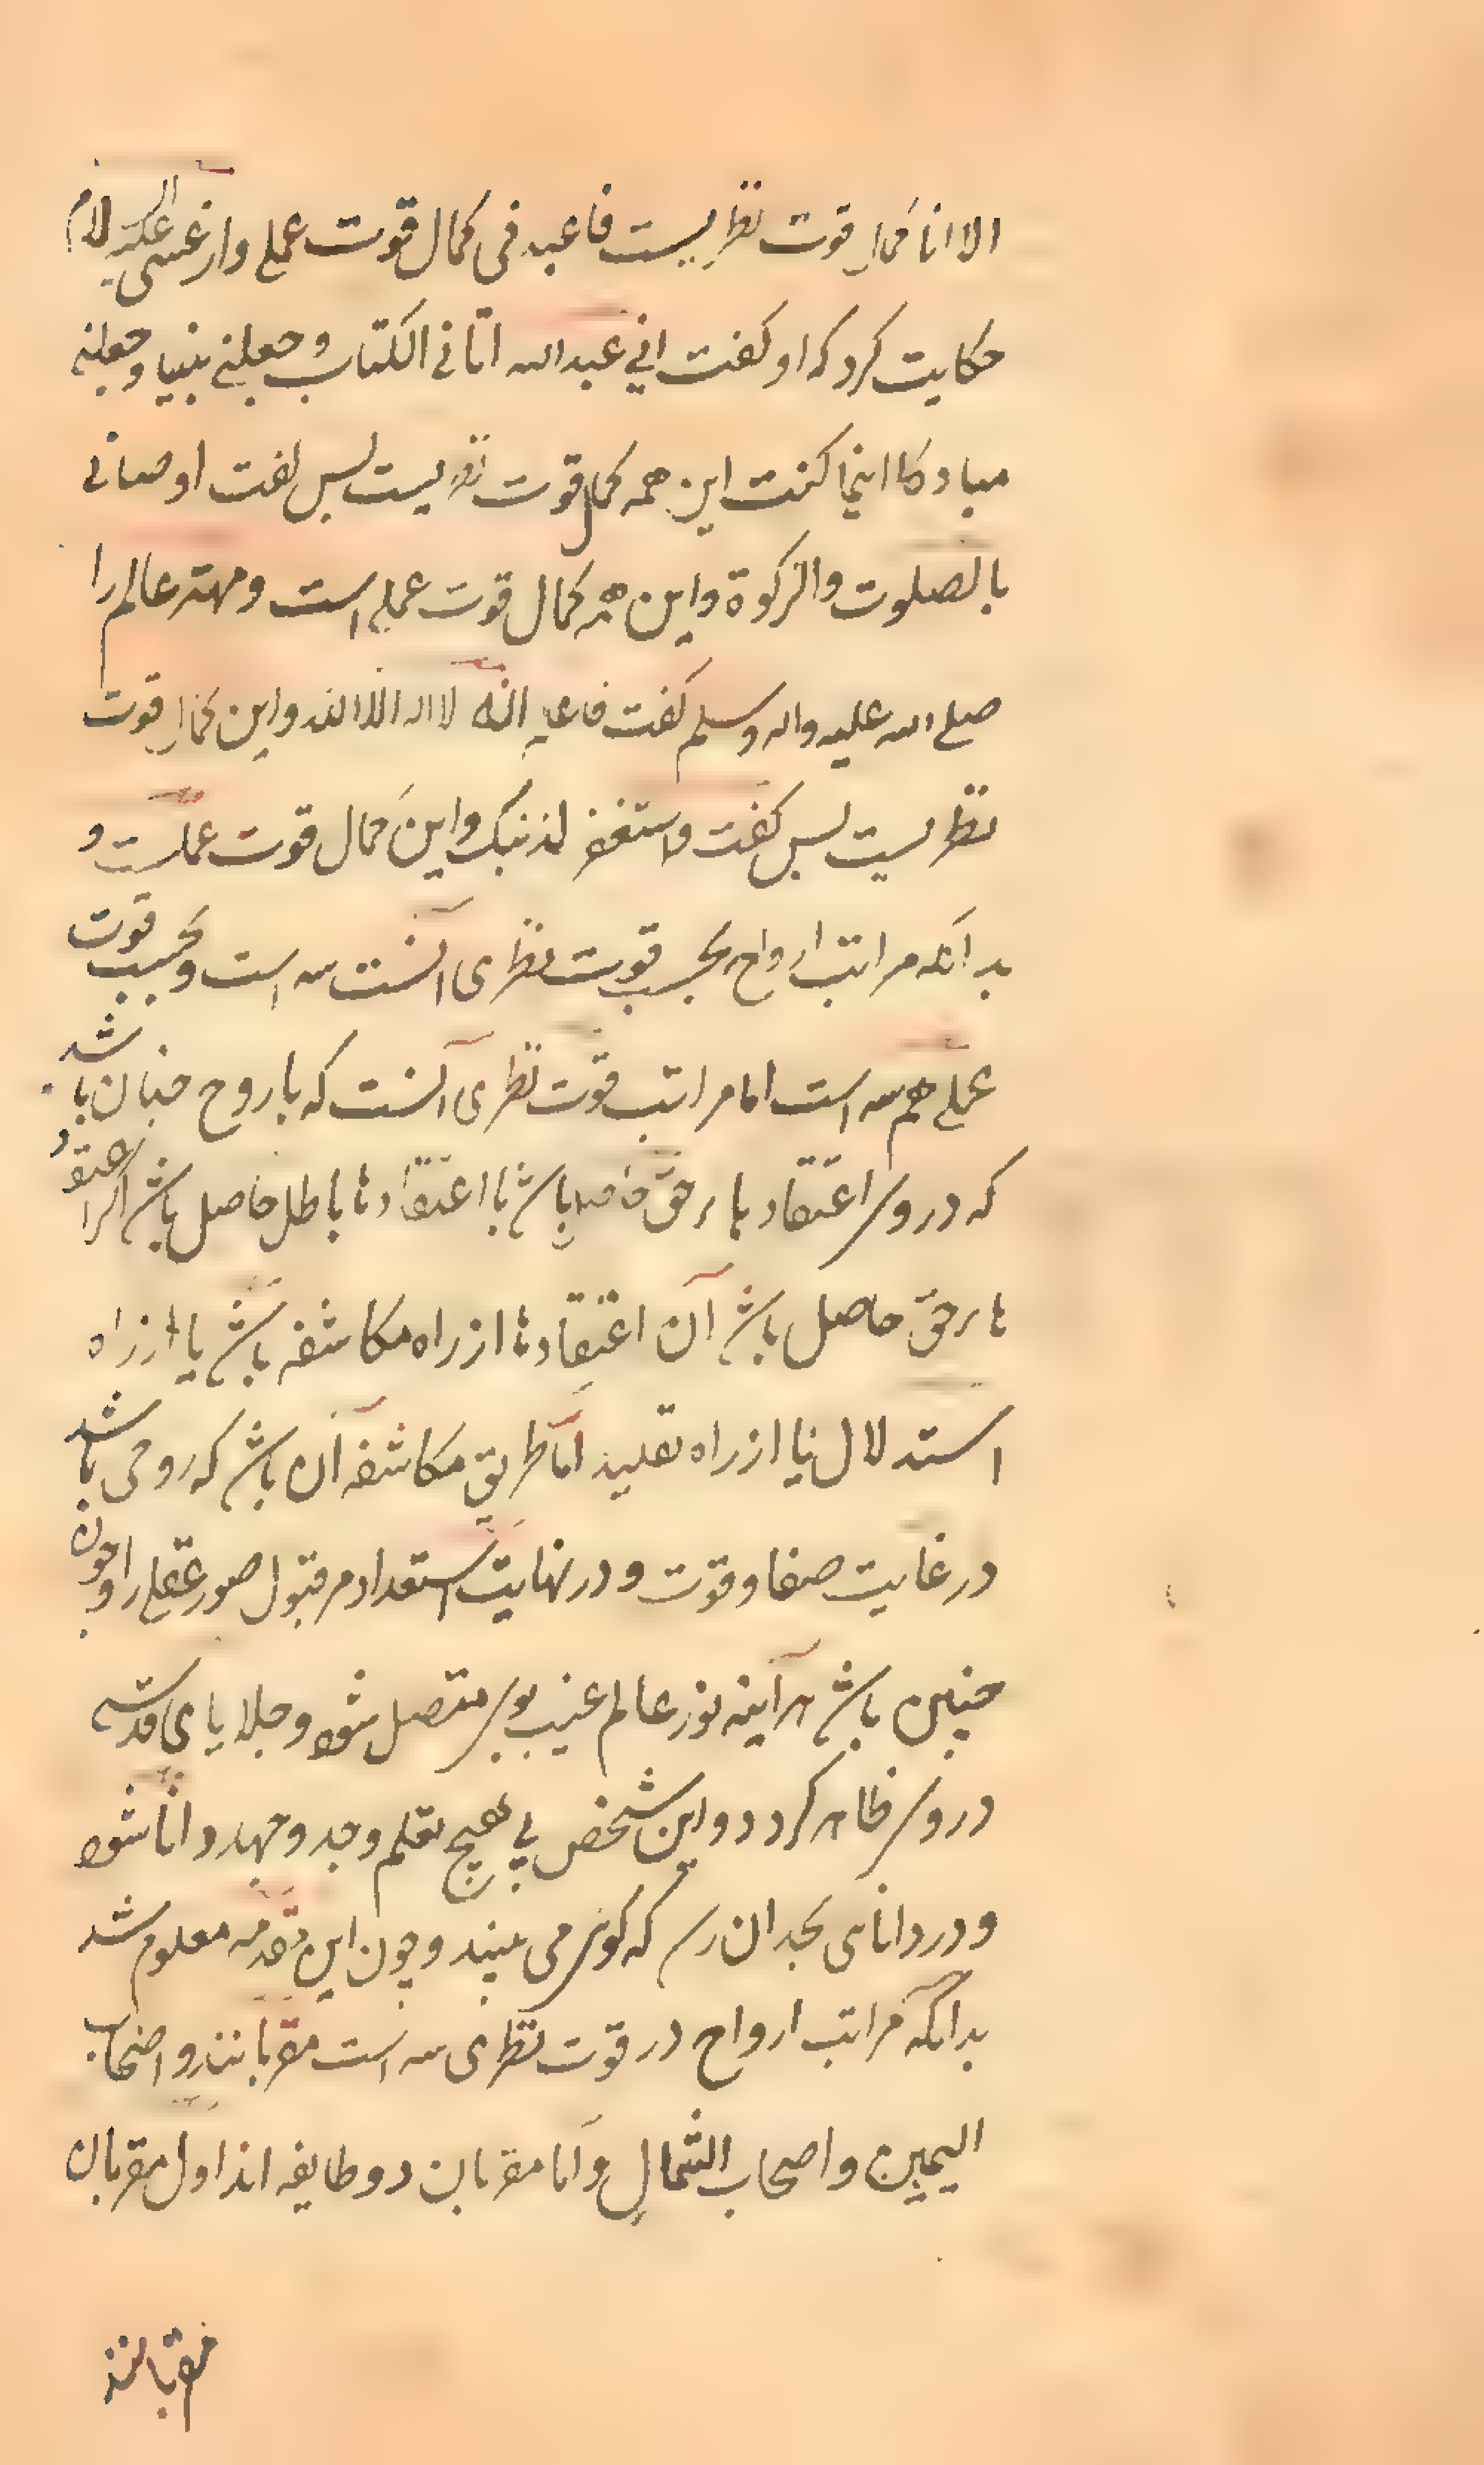 الا انا کمال قوت نظریست فاعبدنی کمال قوت عملی و از عیسی علیه السلام
حکایت کرد که او کفت انی عبد الله اتانی الکتاب و جعلنی نبیا و جعلنی
مبارکا اینما کنت این همه کمال قوت نظریست پس کفت اوصانی
بالصلوت والزکوة و این همه کمال قوت عملی است و مهتر عالم را
صلی الله علیه واله وسلم کفت فاعلم انه لا اله الا الله و این کمال قوت
نظریست پس کفت واستغفر لذنبک و این کمال قوت عملیست و
بدانکه مراتب ارواح بحسب قوت نظری انست سه است و بحسب قوت
عملی هم سه است اما مراتب قوت نظری آنست که یا روح چنان باشد
که در وی اعتقادهاء حق حاصل باشد یا اعتقادها باطل حاصل باشد اکر اعتقاد
هاء حق حاصل باشد آن اعتقادها از راه مکاشفه باشد یا از راه
استدلال یا از راه تقلید اما طریق مکاشفه آن باشد که روحی باشد
در غایت صفا و قوت و در نهایت استعداد مر قبول صور عقلی را و چون
چنین باشد هر آینه نور عالم غیب بوی متصل شود و جلایای قدسی
در وی ظاهر کردد و این شخص بی هیچ تعلم و جد و جهد دانا شود
و در دانایی بجدان رسد که کویی می بیند و چون این مقدمه معلوم شد
بدانکه مراتب ارواح در قوت نظری سه است مقربانند و اصحاب
الیمین و اصحاب الشمال و اما مقربان دو طایفه اند اول مقربان
مقربانند